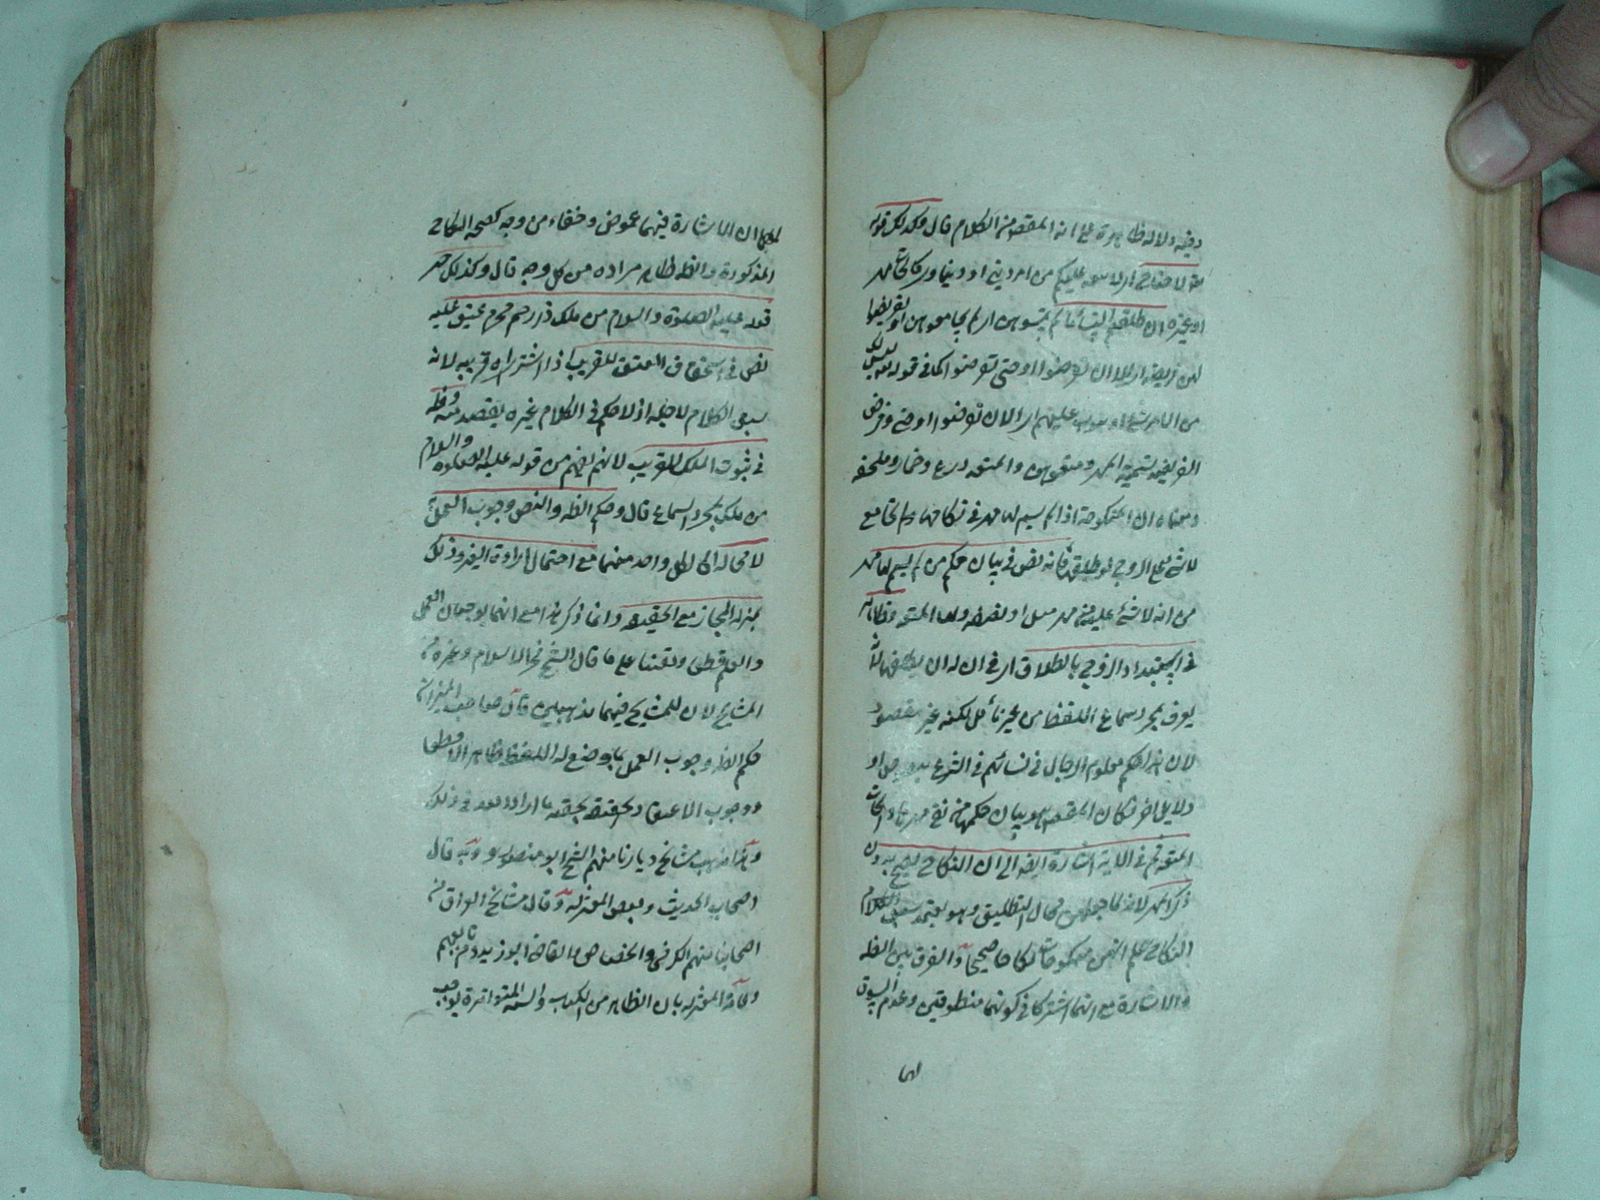 دلالة ظاهرة على انه المقصود من الكلام قال وكذلك قوله
لا جناح اى لا تبعة عليكم من امر دينى او دنياوى
او غيره ان طلقتم النساء ما لم تمسوهن اى لم تجامعوهن او تفرضوا
لهن فريضة اى الا ان تفرضوا او حتى تفرضوا كما فى قوله ليس لك
من الامر شئ او يتوب عليهم اى الا ان تفرضوا او حتى وفرض
الفريضة تسمية المهر ومتعوهن والمتعة درع وخمار وملحفة
ومعناه ان المنكوحة اذا لم يسم لها مهر فى نكاحها ولم تجامع
لا شئ على الزوج لو طلقها فانه نص فى بيان حكم من لم يسم لها مهر
من انه لا شئ عليه من مهر مثل او نصفه ولها المتعة وظاهر
فى استبداد الزوج بالطلاق اى فى ان له ان يطلقها لانه
يعرف بمجرد سماع اللفظ من غير تأمل لكنه غير مقصود
لان هذا الحكم معلوم الرجال فى نسائهم فى الشرع
دلائل اخر فكان المقصود هو بيان حكمها من نفى مهرها وايجاب
المتعة ثم فى الآية اشارة ايضا الى ان النكاح يصح بدون
ذكر المهر لانه لما جعلهن محال التطليق وهو يعتمد سبق
النكاح علم انهن منكوحات نكاحا صحيحا والفرق بين الظاهر
والاشارة مع انهما اشتركا فى كونهما منطوقين وعدم السوق
لهما
لهما ان الاشارة فيها غموض وخفاء من وجه كصحة النكاح
المذكورة والظاهر ظاهر مراده من كل وجه قال وكذلك
قوله عليه الصلوة والسلام من ملك ذا رحم محرم عتق عليه
نص فى استحقاق العتق للقريب اذا اشتراه قريبه لانه
سيق الكلام لاجله اذ لا حكم فى الكلام غيره يقصد منه وظاهر
فى ثبوت الملك للقريب لانه يفهم من قوله عليه الصلوة والسلام
من ملك بمجرد السماع قال وحكم الظاهر والنص وجوب العمل
لا محالة اى لكل واحد منهما مع احتمال ارادة الغير وذلك
بمنزلة المجاز مع الحقيقة وانما ذكر هذا مع انهما يوجبان العمل
والعلم قطعا ويقينا على ما قال الشيخ فخر الاسلام وغيره من
المشايخ لان للمشايخ فيهما مذهبين قال صاحب الميزان
حكم الظاهر وجوب العمل بما وضع له اللفظ ظاهرا لا قطعا
ووجوب الاعتقاد بحقية ما اراد الله تعالى فى ذلك
وهذا مذهب مشايخ ديارنا منهم الشيخ ابو منصور وبه قال
اصحاب الحديث وبعض المعتزلة وقال مشايخ العراق من
اصحابنا منهم الكرخى والجصاص والقاضى ابو زيد ومن تابعهم
وعامة المعتزلة بان الظاهر من الكتاب والسنة المتواترة يوجب